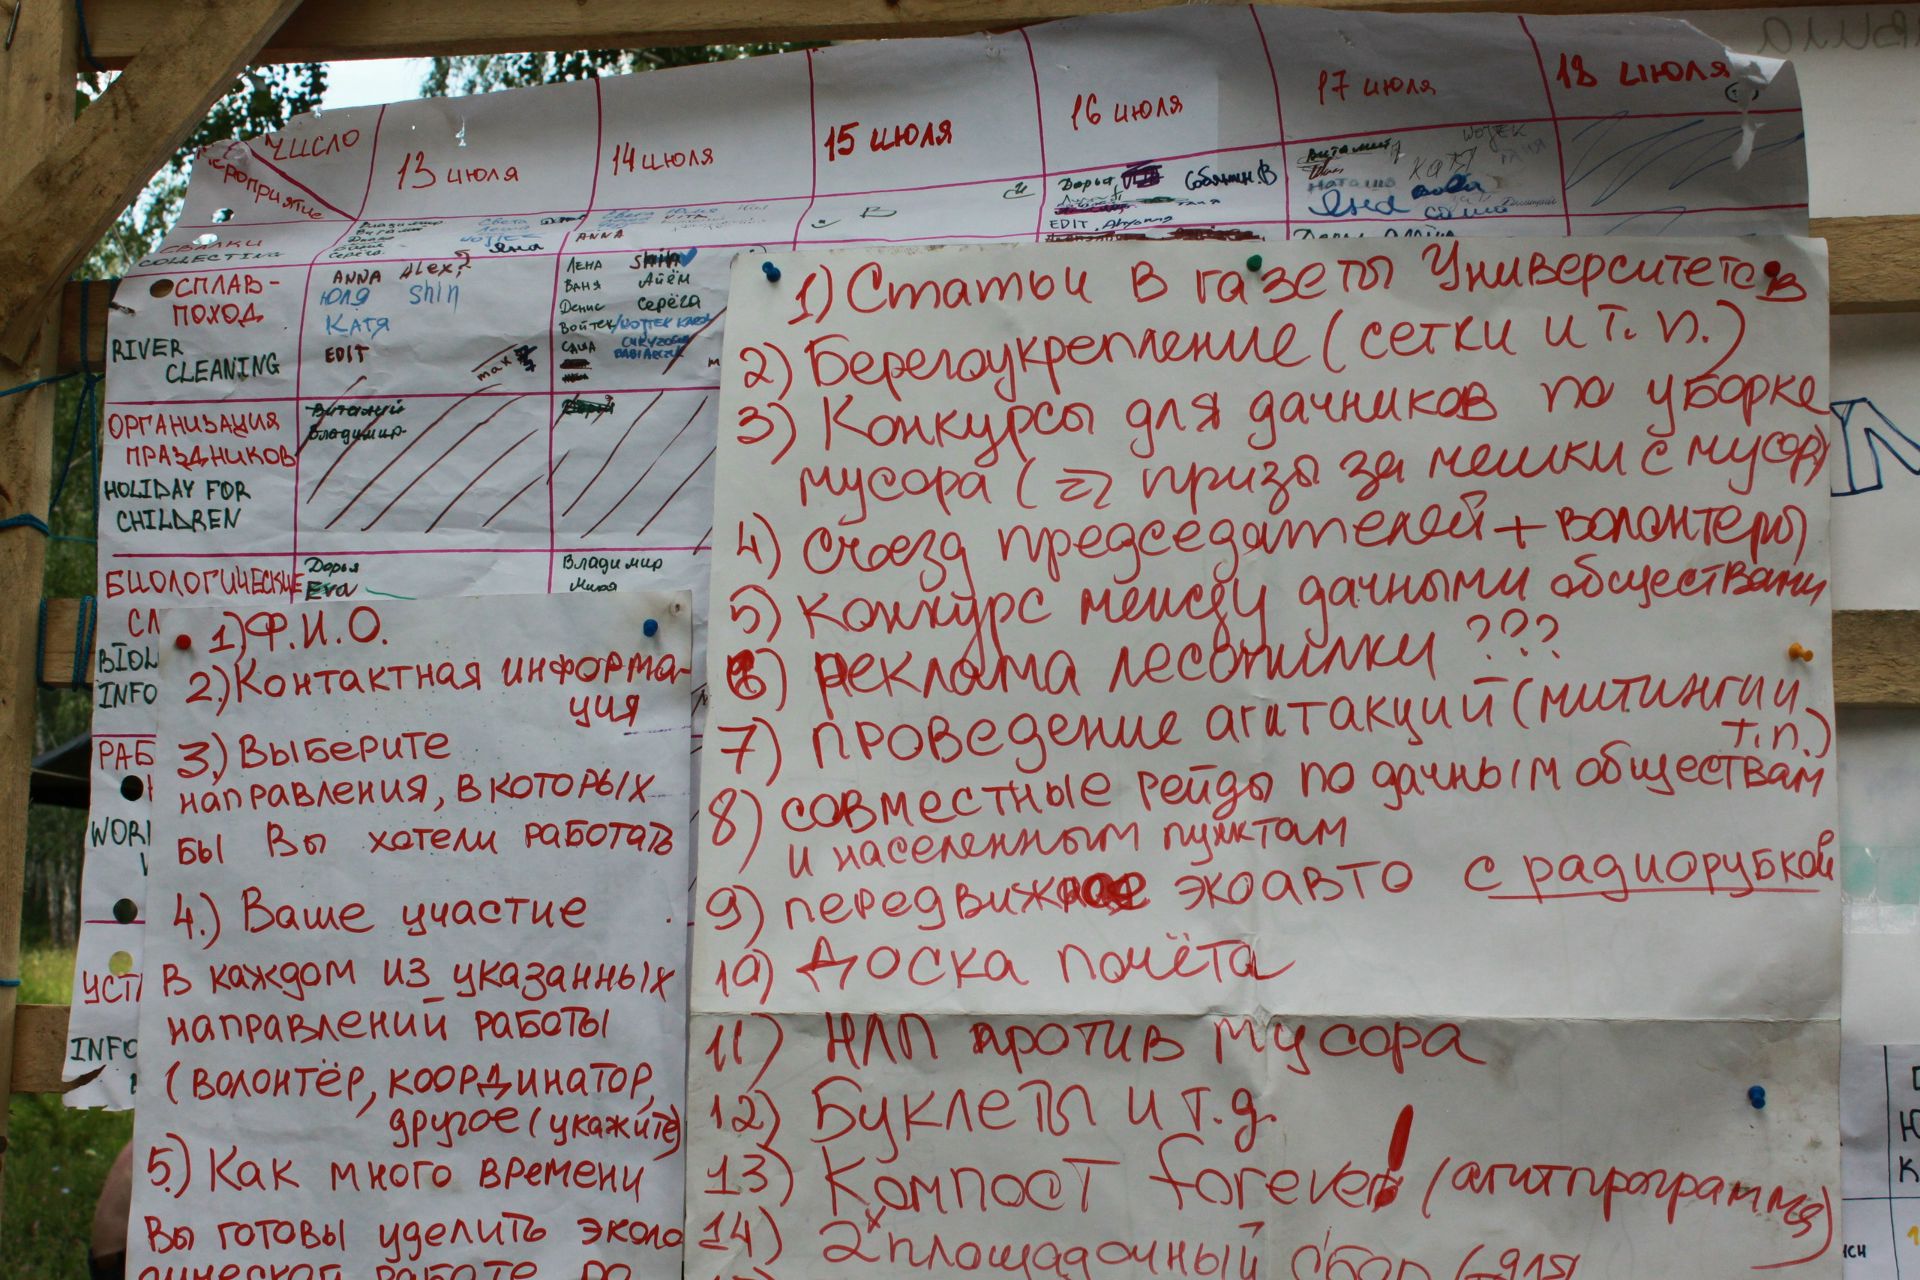 число
мероприятие
13 июля
14 июля
15 июля
16 июля
17 июля
18 июля
Дарья
EDIT
WOJEK
КАТЯ
Наташа
Яна
свалки
COLLECTING
Яна
ANNA
СПЛАВ-
ПОХОД
RIVER
CLEANING
ANNA Alex?
Юля Shin
Катя
EDIT
max
Лена Shin
Ваня Айём
Денис Серёга
Войтек/WOJTEK
Саша
ОРГАНИЗАЦИЯ
ПРАЗДНИКОВ
HOLIDAY FOR
CHILDREN
Виталий
Владимир
БИОЛОГИЧЕСКИЕ
Дарья
Eva
Владимир
Мира
СЛ
BIOL
INFO
РАБ
WORK
УСТ
INFO
1) Ф.И.О.
2.) Контактная информа-
ция
3.) Выберите
направления, в которых
бы Вы хотели работать
4.) Ваше участие
в каждом из указанных
направлений работы
(волонтёр, координатор,
другое (укажите)
5.) Как много времени
Вы готовы уделить эколо
1) Статьи в газеты Университетов
2) Берегоукрепление (сетки и т.п.)
3) Конкурсы для дачников по уборке
мусора (=> призы за мешки с мусор)
4) съезд председателей + волонтеры
5) конкурс между дачными обществами
6) реклама лесопилки ???
7) проведение агитакций (митинги и
т.п.)
8) совместные рейды по дачным обществам
и населенным пунктам
9) передвижное экоавто с радиорубкой
10) Доска почёта
11) НЛП против мусора
12) Буклеты и т.д.
13) Компост forever! (агитпрограмма)
14) 2х площадочный сбор (для